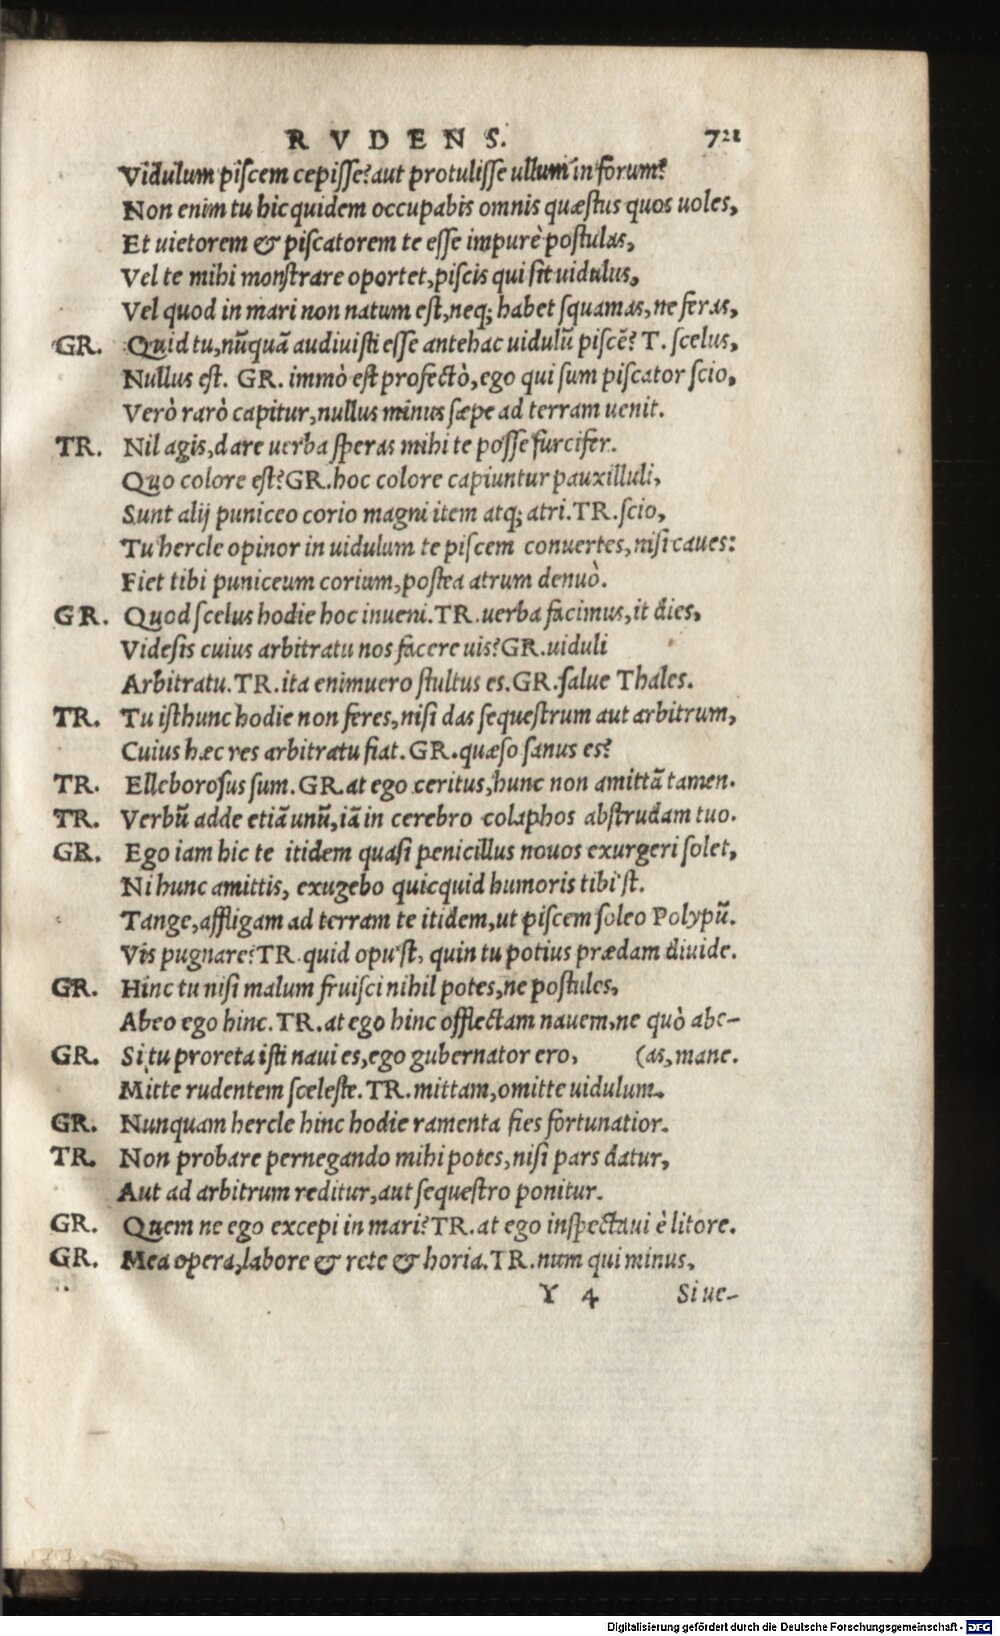 RVDENS. 721
Vidulum piſcem cepiſſe? aut protuliſſe ullum in forum?
Non enim tu hic quidem occupabis omnis quæſtus quos uoles,
Et uietorem & piſcatorem te eſſe impurè poſtulas,
Vel te mihi monſtrare oportet, piſcis qui ſit uidulus,
Vel quod in mari non natum eſt, neq; habet ſquamas, ne feras,
GR. Quid tu, nũquã audiuiſti eſſe antehac uidulũ piſcẽ? T. ſcelus,
Nullus eſt. GR. immò eſt profectò, ego qui ſum piſcator ſcio,
Verò rarò capitur, nullus minus ſæpe ad terram uenit.
TR. Nil agis, dare uerba ſperas mihi te poſſe furcifer.
Quo colore eſt? GR. hoc colore capiuntur pauxilluli,
Sunt alij puniceo corio magni item atq; atri. TR. ſcio,
Tu hercle opinor in uidulum te piſcem conuertes, niſi caues:
Fiet tibi puniceum corium, poſtea atrum denuò.
GR. Quod ſcelus hodie hoc inueni. TR. uerba facimus, it dies,
Videſis cuius arbitratu nos facere uis? GR. uiduli
Arbitratu. TR. ita enimuero ſtultus es. GR. ſalue Thales.
TR. Tu iſthunc hodie non feres, niſi das ſequeſtrum aut arbitrum,
Cuius hæc res arbitratu fiat. GR. quæſo ſanus es?
TR. Elleboroſus ſum. GR. at ego ceritus, hunc non amittã tamen.
TR. Verbũ adde etiã unũ, iã in cerebro colaphos abſtrudam tuo.
GR. Ego iam hic te itidem quaſi penicillus nouos exurgeri ſolet,
Ni hunc amittis, exugebo quicquid humoris tibi'ſt.
Tange, affligam ad terram te itidem, ut piſcem ſoleo Polypũ.
Vis pugnare? TR. quid opu'ſt, quin tu potius prædam diuide.
GR. Hinc tu niſi malum fruiſci nihil potes, ne poſtules,
Abeo ego hinc. TR. at ego hinc offlectam nauem, ne quò abe-
GR. Si tu proreta iſti naui es, ego gubernator ero, (as, mane.
Mitte rudentem ſceleſte. TR. mittam, omitte uidulum.
GR. Nunquam hercle hinc hodie ramenta fies fortunatior.
TR. Non probare pernegando mihi potes, niſi pars datur,
Aut ad arbitrum reditur, aut ſequeſtro ponitur.
GR. Quem ne ego excepi in mari? TR. at ego inſpectaui è litore.
GR. Mea opera, labore & rete & horia. TR. num qui minus,
Y 4 Si ue-
Digitalisierung gefördert durch die Deutsche Forschungsgemeinschaft - DFG